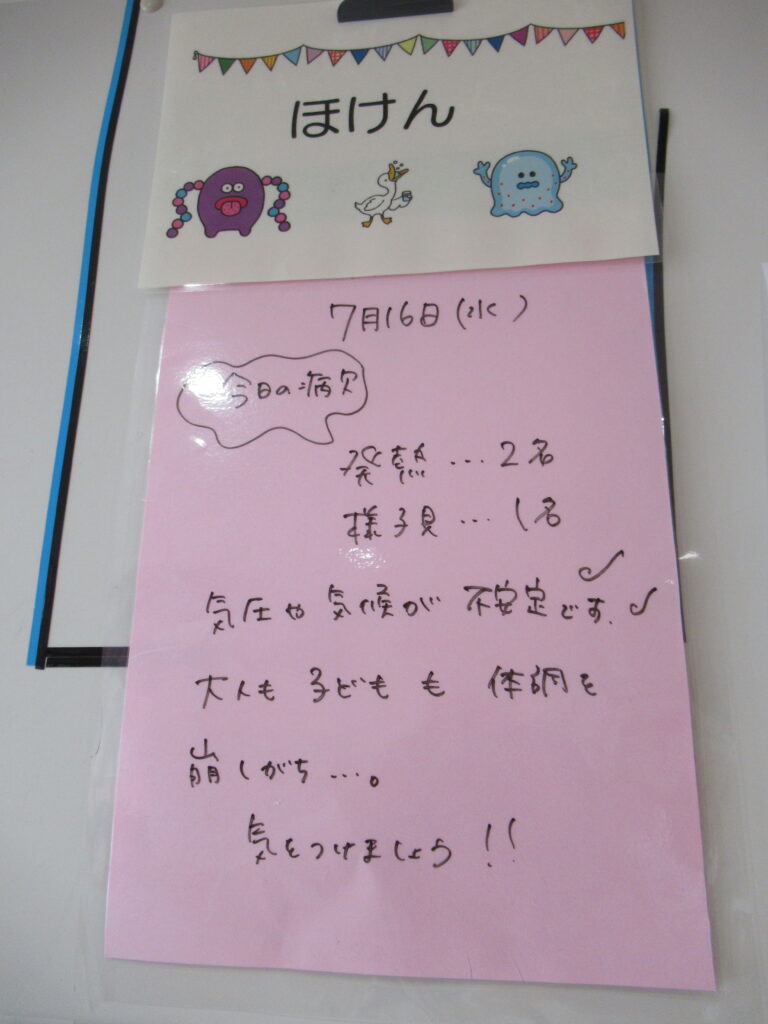 ほけん
7月16日(水)
今日の病欠
発熱…2名
様子見…1名
気圧や気候が不安定です.
大人も子どもも体調を
崩しがち…。
気をつけましょう!!